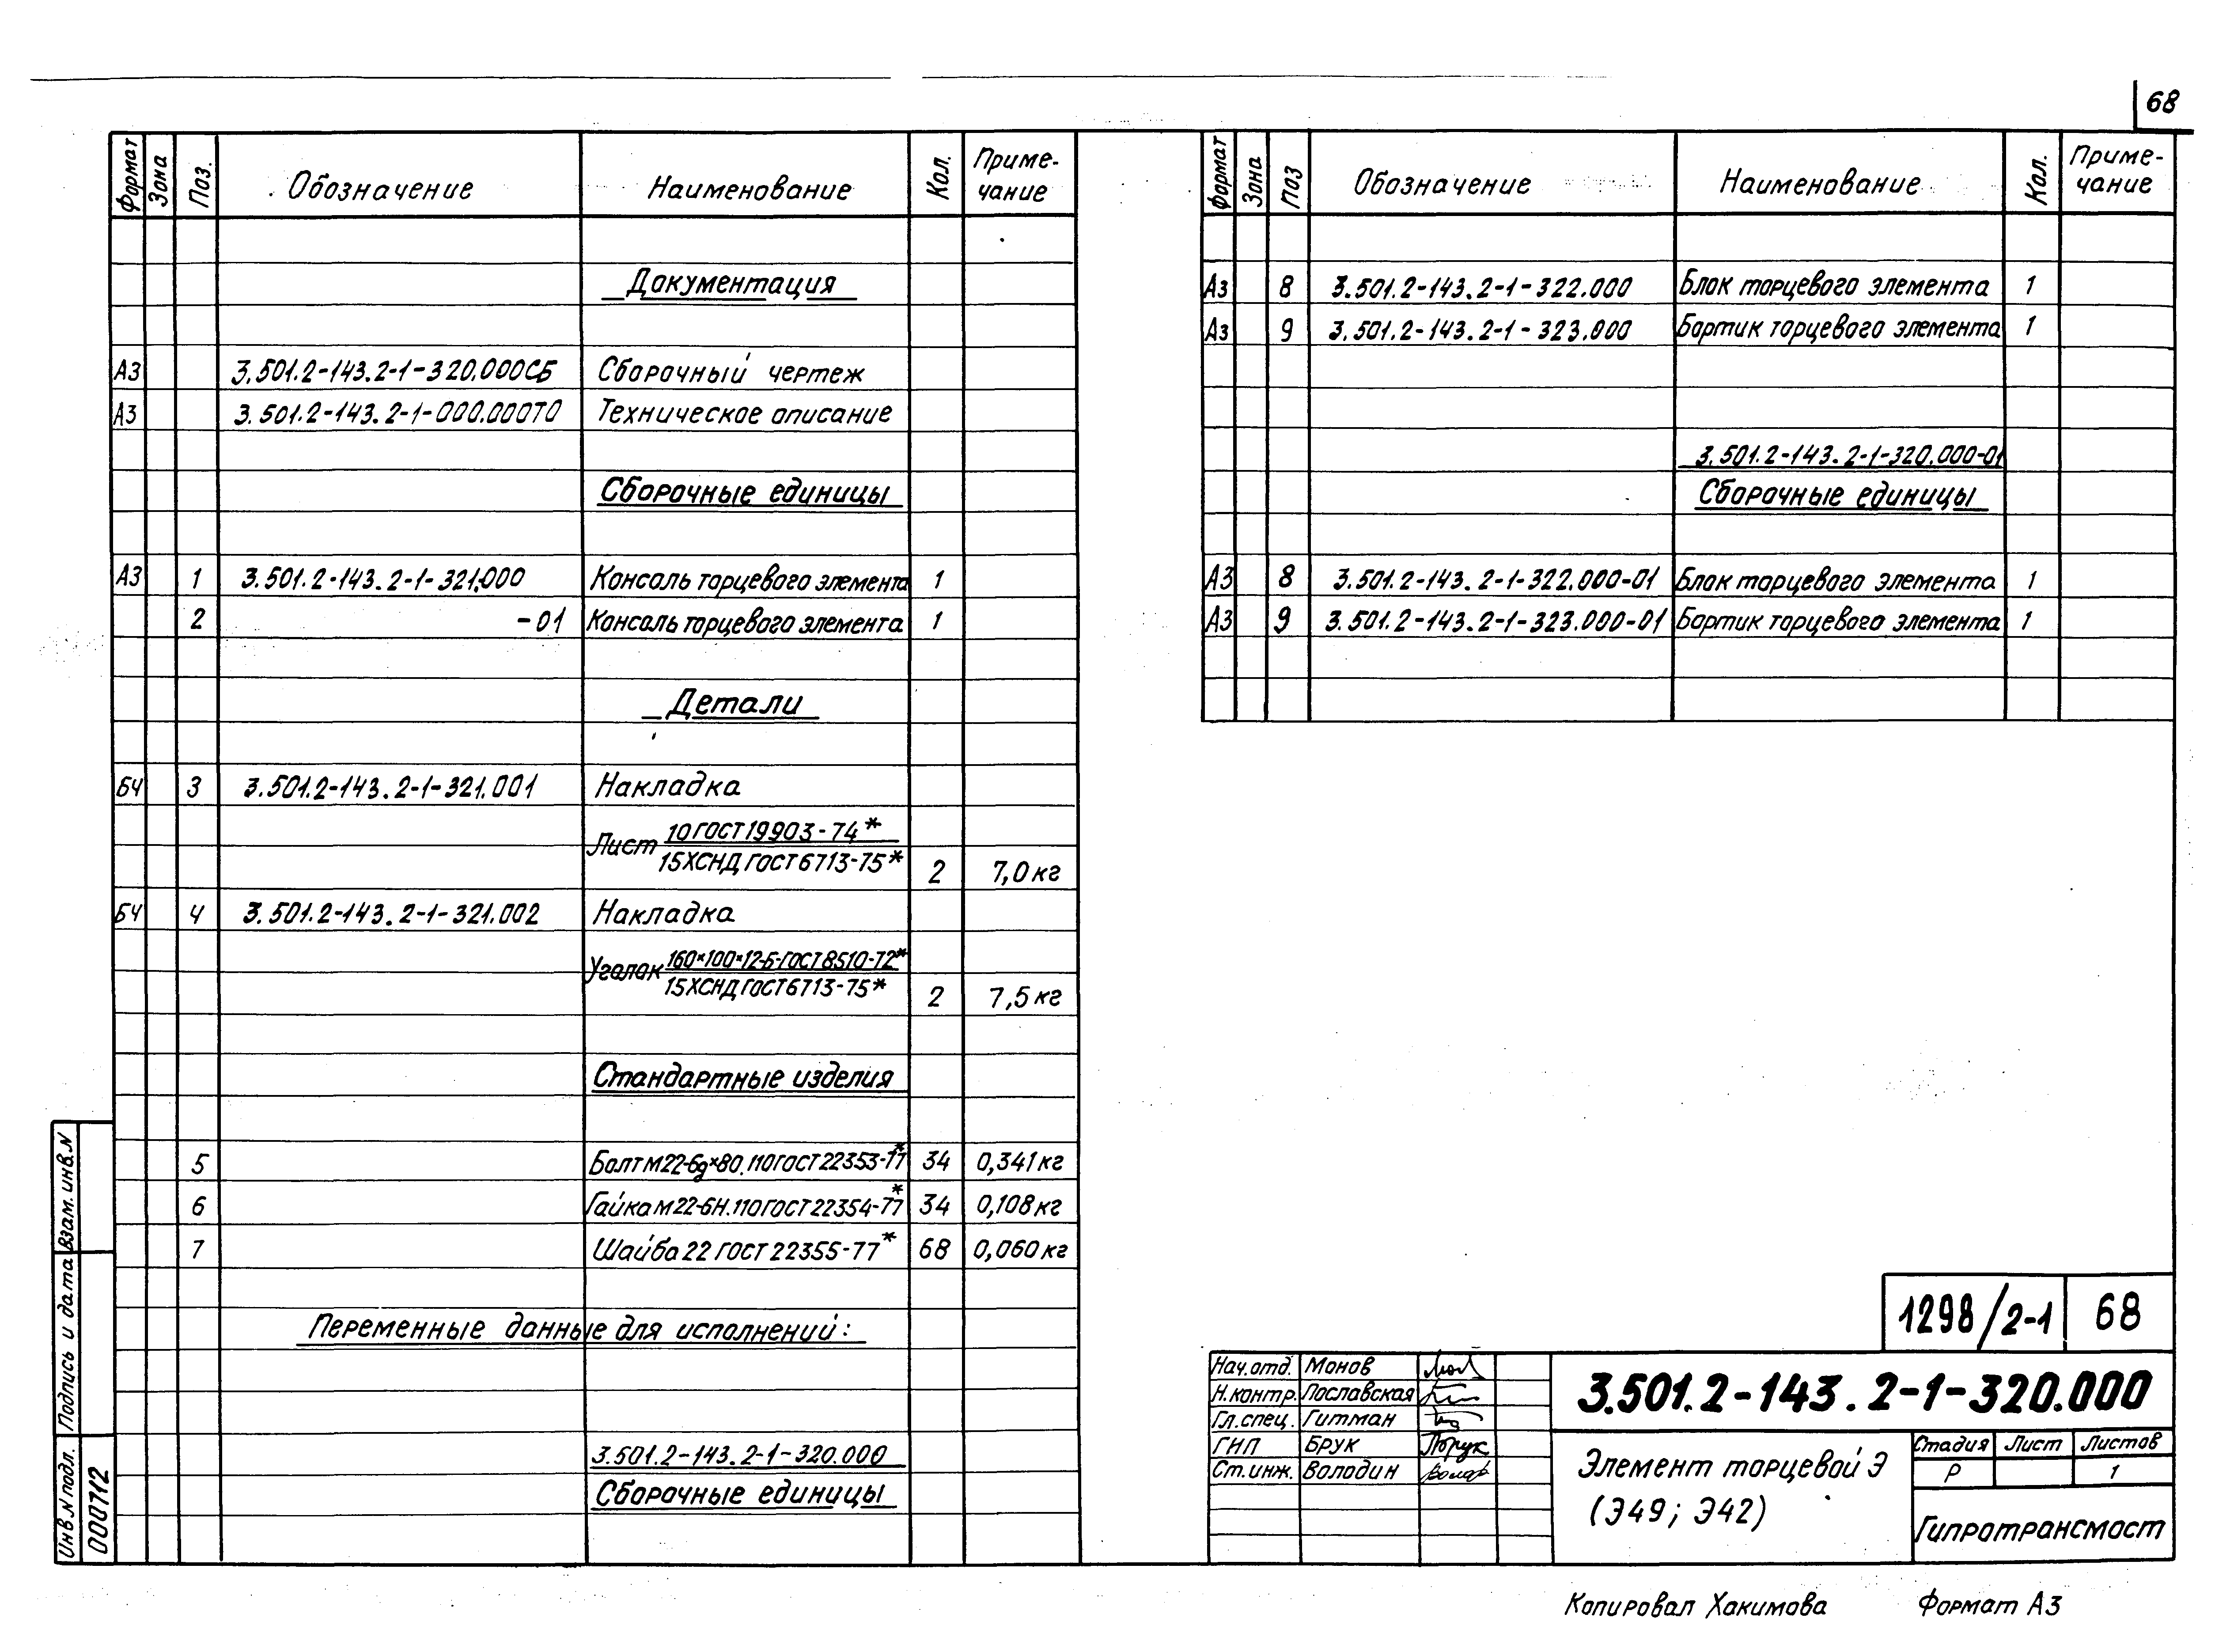 68
Формат Зона Поз. Обозначение Наименование Кол. Приме-
чание
Документация
А3 3.501.2-143.2-1-320.000СБ Сборочный чертеж
А3 3.501.2-143.2-1-000.000ТО Техническое описание
Сборочные единицы
А3 1 3.501.2-143.2-1-321.000 Консоль торцевого элемента 1
2 -01 Консоль торцевого элемента 1
Детали
БЧ 3 3.501.2-143.2-1-321.001 Накладка
Лист 10 ГОСТ 19903-74*
15ХСНД ГОСТ 6713-75* 2 7,0 кг
БЧ 4 3.501.2-143.2-1-321.002 Накладка
Уголок 160×100×12-Б-ГОСТ 8510-72*
15ХСНД ГОСТ 6713-75* 2 7,5 кг
Стандартные изделия
5 Болт М22-6g×80.110 ГОСТ 22353-77* 34 0,341 кг
6 Гайка М22-6Н.110 ГОСТ 22354-77* 34 0,108 кг
7 Шайба 22 ГОСТ 22355-77* 68 0,060 кг
Переменные данные для исполнений:
3.501.2-143.2-1-320.000
Сборочные единицы
Формат Зона Поз Обозначение Наименование Кол. Приме-
чание
А3 8 3.501.2-143.2-1-322.000 Блок торцевого элемента 1
А3 9 3.501.2-143.2-1-323.000 Бортик торцевого элемента 1
3.501.2-143.2-1-320.000-01
Сборочные единицы
А3 8 3.501.2-143.2-1-322.000-01 Блок торцевого элемента 1
А3 9 3.501.2-143.2-1-323.000-01 Бортик торцевого элемента 1
Инв.N подл. Подпись и дата Взам. инв.N
000712
1298/2-1 68
Нач.отд. Монов
Н.контр. Пославская
Гл.спец. Гитман
ГИП Брук
Ст.инж. Володин
3.501.2-143.2-1-320.000
Элемент торцевой Э
(Э49; Э42)
Стадия Лист Листов
Р 1
Гипротрансмост
Копировал Хакимова Формат А3